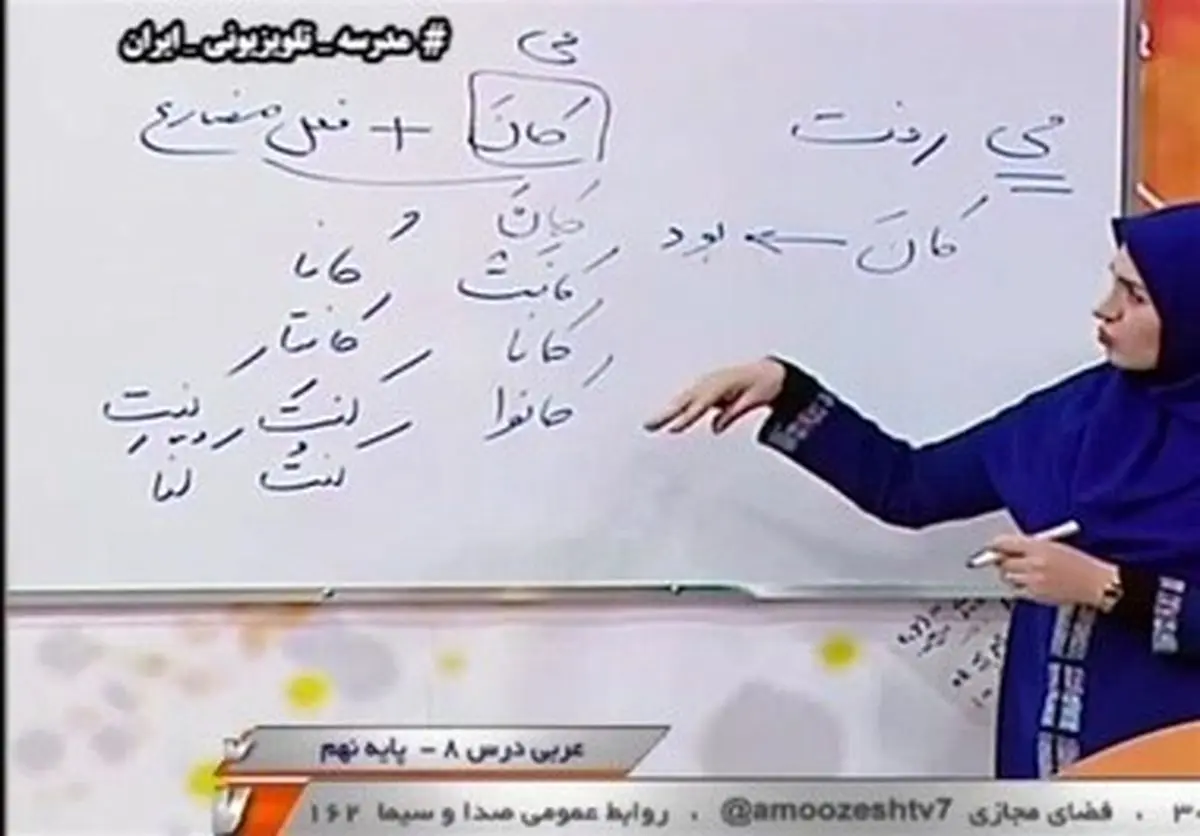 #مدرسه_تلویزیونی_ایران
می
کانَ + فعل مضارع
می رفت
کانَ
کانَ ← بود
کانَتْ کانا
کانا کانتا
کانوا کنتَ کنتِ
کنتُ کنا
عربی درس ۸ - پایه نهم
فضای مجازی @amoozeshtv7 ، روابط عمومی صدا و سیما ۱۶۲